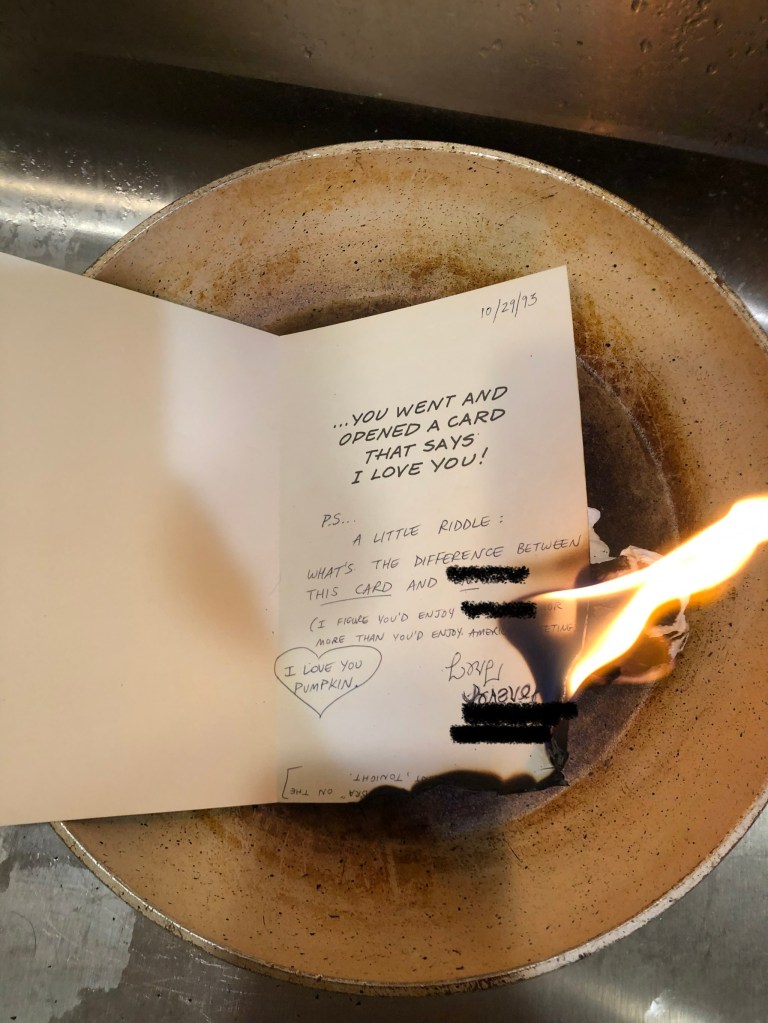 10/29/93
...YOU WENT AND
OPENED A CARD
THAT SAYS
I LOVE YOU!
P.S...
A LITTLE RIDDLE:
WHAT'S THE DIFFERENCE BETWEEN
THIS CARD AND
(I FIGURE YOU'D ENJOY
MORE THAN YOU'D ENJOY
I LOVE YOU
PUMPKIN.
[
ON THE
TONIGHT.